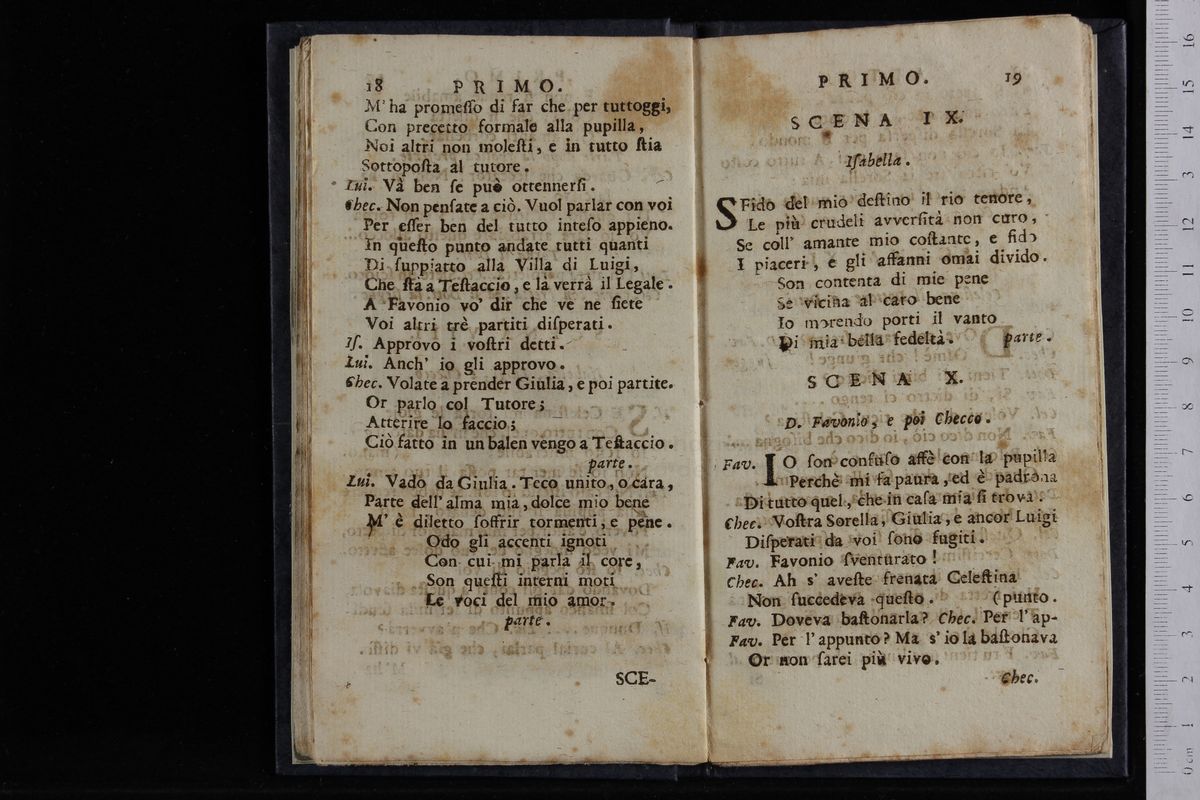 18 PRIMO.
M' ha promeſſo di far che per tuttoggi,
Con precetto formale alla pupilla,
Noi altri non moleſti, e in tutto ſtia
Sottopoſta al tutore.
Lui. Và ben ſe può ottennerſi.
Chec. Non penſate a ciò. Vuol parlar con voi
Per eſſer ben del tutto inteſo appieno.
In queſto punto andate tutti quanti
Di ſuppiatto alla Villa di Luigi,
Che ſta a Teſtaccio, e là verrà il Legale.
A Favonio vo' dir che ve ne ſiete
Voi altri trè partiti diſperati.
Iſ. Approvo i voſtri detti.
Lui. Anch' io gli approvo.
Chec. Volate a prender Giulia, e poi partite.
Or parlo col Tutore;
Atterire lo faccio;
Ciò fatto in un balen vengo a Teſtaccio.
parte.
Lui. Vado da Giulia. Teco unito, o cara,
Parte dell' alma mia, dolce mio bene
M' è diletto ſoffrir tormenti, e pene.
Odo gli accenti ignoti
Con cui mi parla il core,
Son queſti interni moti
Le voci del mio amor.
parte.
SCE-
PRIMO. 19
SCENA IX.
Iſabella.
SFido del mio deſtino il rio tenore,
Le più crudeli avverſità non curo,
Se coll' amante mio coſtante, e fido
I piaceri, e gli affanni omai divido.
Son contenta di mie pene
Se vicina al caro bene
Io morendo porti il vanto
Di mia bella fedeltà. parte.
SCENA X.
D. Favonio, e poi Checco.
Fav. IO ſon confuſo affè con la pupilla
Perchè mi fa paura, ed è padrona
Di tutto quel, che in caſa mia ſi trova.
Chec. Voſtra Sorella, Giulia, e ancor Luigi
Diſperati da voi ſono fugiti.
Fav. Favonio ſventurato!
Chec. Ah s' aveſte frenata Celeſtina
Non ſuccedeva queſto. (punto.
Fav. Doveva baſtonarla? Chec. Per l' ap-
Fav. Per l' appunto? Ma s' io la baſtonava
Or non ſarei più vivo.
Chec.
0 cm 1 2 3 4 5 6 7 8 9 10 11 12 13 14 15 16